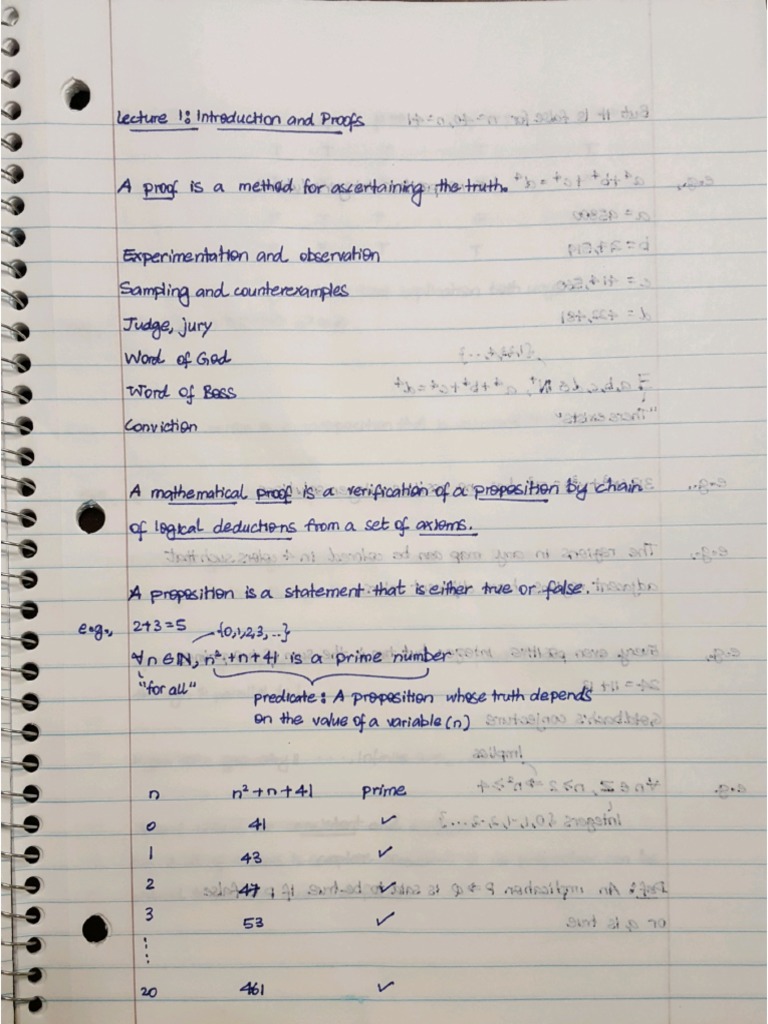 Lecture 1: Introduction and Proofs
A proof is a method for ascertaining the truth.
Experimentation and observation
Sampling and counterexamples
Judge, jury
Word of God
Word of Boss
Conviction
A mathematical proof is a verification of a proposition by chain
of logical deductions from a set of axioms.
A proposition is a statement that is either true or false.
e.g., 2+3=5
{0,1,2,3, ...}
∀n ∈ ℕ, n²+n+41 is a prime number
"for all"
predicate: A proposition whose truth depends
on the value of a variable (n)
n n²+n+41 prime
0 41 ✓
1 43 ✓
2 47 ✓
3 53 ✓
⋮
20 461 ✓